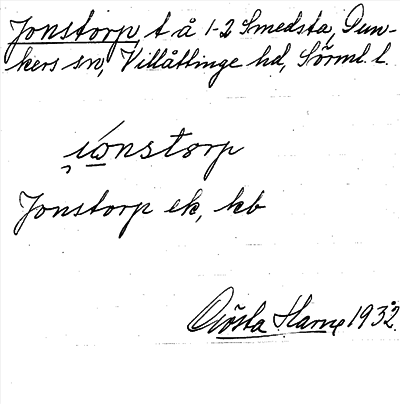 Jonstorp t å 1-2 Smedsta, Dun-
kers sn, Villåttinge hd, Sörml. l.
Jonstorp ek, kb
Gösta Harve 1932.